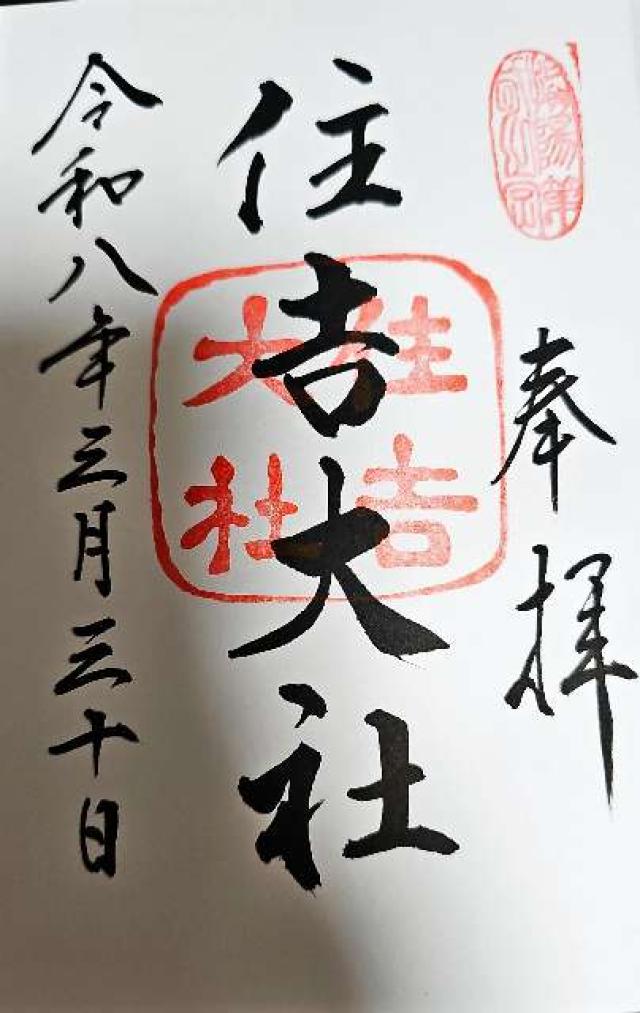 奉拝
住吉大社
住吉大社
令和八年三月三十日